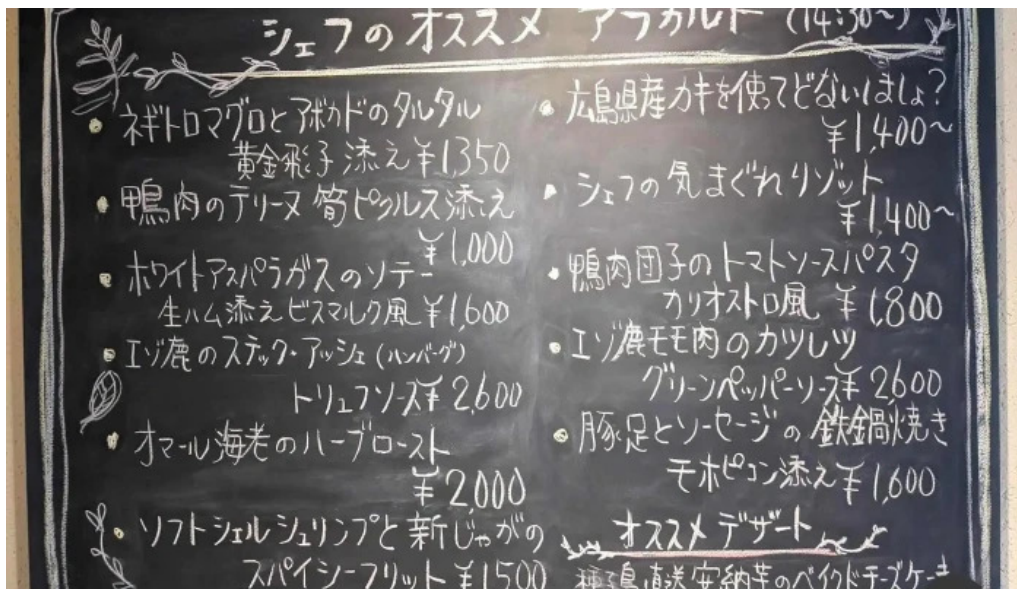 シェフのオススメ アラカルト (14:30~)
・ネギトロマグロとアボカドのタルタル
黄金飛子添え ¥1,350
・鴨肉のテリーヌ 筍ピクルス添え
¥1,000
・ホワイトアスパラガスのソテー
生ハム添え ビスマルク風 ¥1,600
・エゾ鹿のステック・アッシェ(ハンバーグ)
トリュフソース ¥2,600
・オマール海老のハーブロースト
¥2,000
・ソフトシェルシュリンプと新じゃがの
スパイシーフリット ¥1500
・広島県産カキを使ってどないしましょ?
¥1,400~
・シェフの気まぐれリゾット
¥1,400~
・鴨肉団子のトマトソースパスタ
カリオストロ風 ¥1,800
・エゾ鹿モモ肉のカツレツ
グリーンペッパーソース ¥2,600
・豚足とソーセージの鉄鍋焼き
モホピコン添え ¥1,600
オススメデザート
種子島直送安納芋のベイクドチーズケーキ